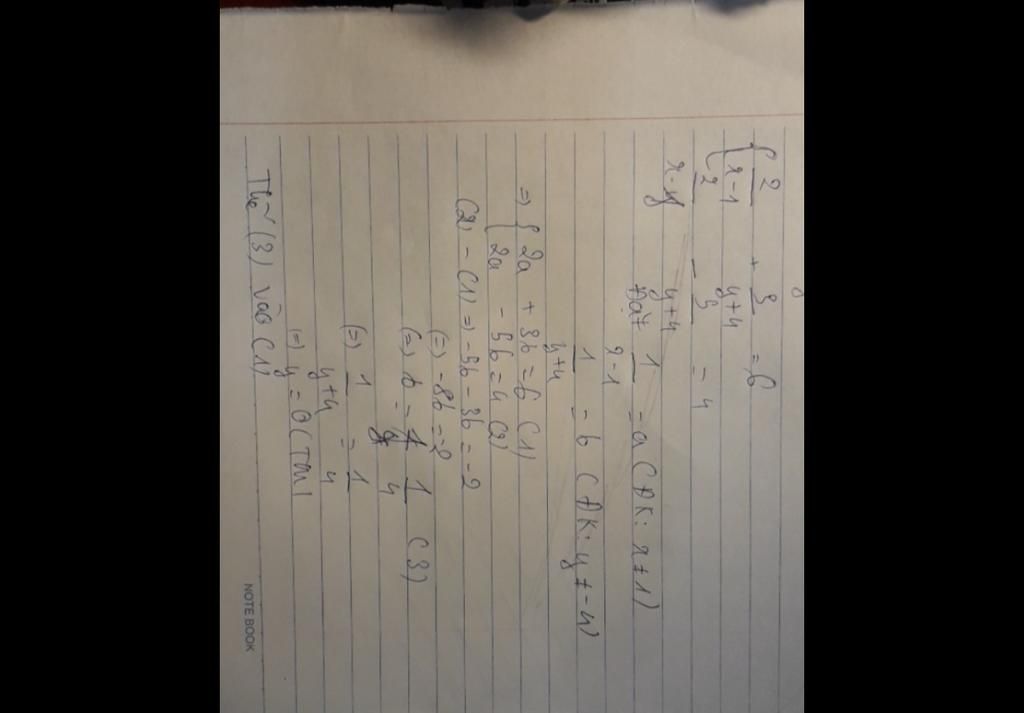 { 2/x-1 + 3/y+4 = 6
2/x-y - 5/y+4 = 4
Đặt 1/x-1 = a (ĐK: x≠1)
1/y+4 = b (ĐK: y≠-4)
=> { 2a + 3b = 6 (1)
2a - 5b = 4 (2)
(2) - (1) => -5b - 3b = -2
(=) -8b = -2
(=) b = 1/4 (3)
(=) 1/y+4 = 1/4
(=) y = 0 (TM)
Thế (3) vào (1)
NOTE BOOK